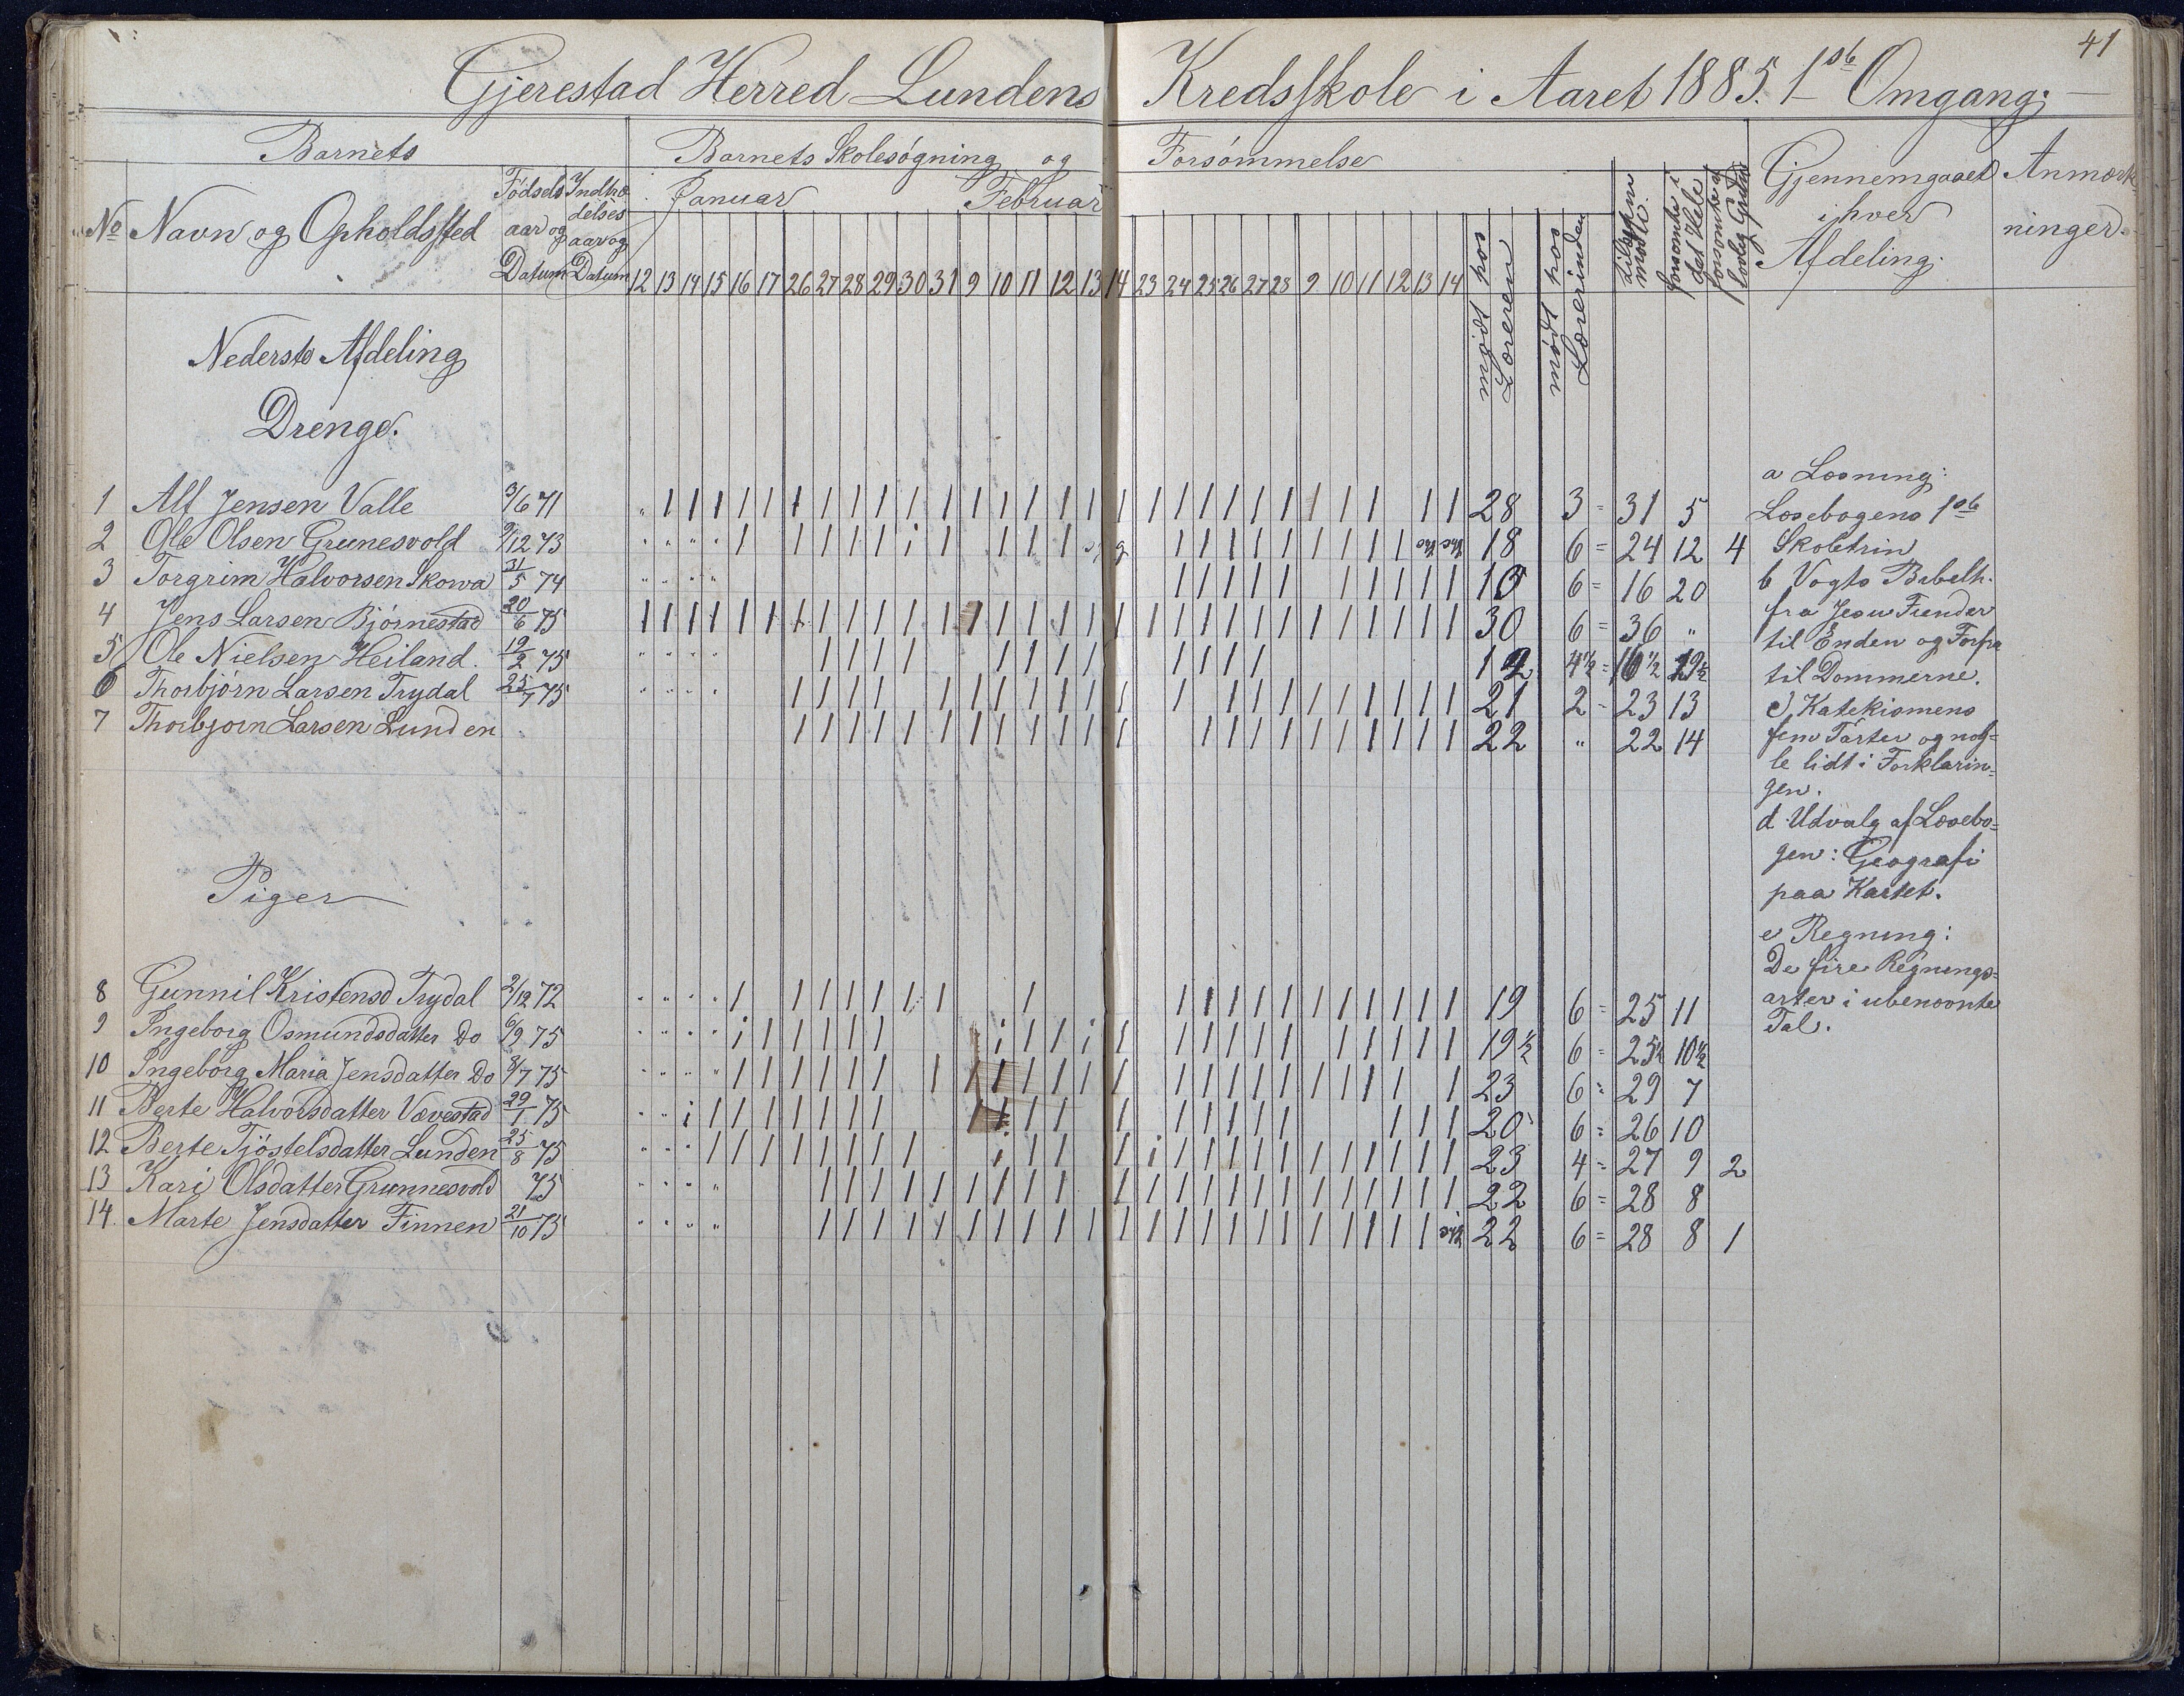 41
Gjerestad Herred Lundens Kredsskole i Aaret 1885. 1ste Omgang.
Barnets Barnets Skolesøgning og Forsømmelse
No Navn og Opholdssted Fødsels aar og Datum Indtrædelses aar og Datum Januar Februar mødt hos Læreren mødt hos Lærerinden tilsammen mødte forsømte i det Hele forsømte af lovlig Grund Gjennemgaaet i hver Afdeling. Anmærkninger.
12 13 14 15 16 17 26 27 28 29 30 31 9 10 11 12 13 14 23 24 25 26 27 28 9 10 11 12 13 14
Nederste Afdeling
Drenge.
1 Alf Jensen Valle 3/6 71 28 3 = 31 5
2 Ole Olsen Grunesvold 9/12 73 18 6 = 24 12 4
3 Torgrim Halvorsen Skorva 31/5 74 10 6 = 16 20
4 Jens Larsen Bjørnestad 20/6 75 30 6 = 36 "
5 Ole Nielsen Heiland. 19/2 75 12 4 1/2 = 16 1/2 19 1/2
6 Thorbjørn Larsen Trydal 25/7 75 21 2 = 23 13
7 Thorbjørn Larsen Lunden 22 " 22 14
Piger
8 Gunnil Kristensd Trydal 2/12 72 19 6 = 25 11
9 Ingeborg Osmundsdatter Do 6/9 75 19 1/2 6 = 25 1/2 10 1/2
10 Ingeborg Maria Jensdatter Do 3/7 75 23 6 = 29 7
11 Berte Halvorsdatter Vævestad 29/1 75 20 6 = 26 10
12 Berte Tjøstelsdatter Lunden 25/8 75 23 4 = 27 9 2
13 Kari Olsdatter Grunnesvold 75 22 6 = 28 8
14. Marte Jensdatter Finnen 21/10 75 22 6 = 28 8 1
a Læsning:
Læsebogens 1ste
Skoletrin
b Vogts Bibelh.
fra Jesu Fiender
til Enden og Forfra
til Dommerne.
c, Katekismens
fem Parter og nog=
le lidt i Forklarin=
gen.
d Udvalg af Læsebo=
gen: Geografi
paa Kartet.
e Regning:
De fire Regnings=
arter i ubenævnte
Tal.